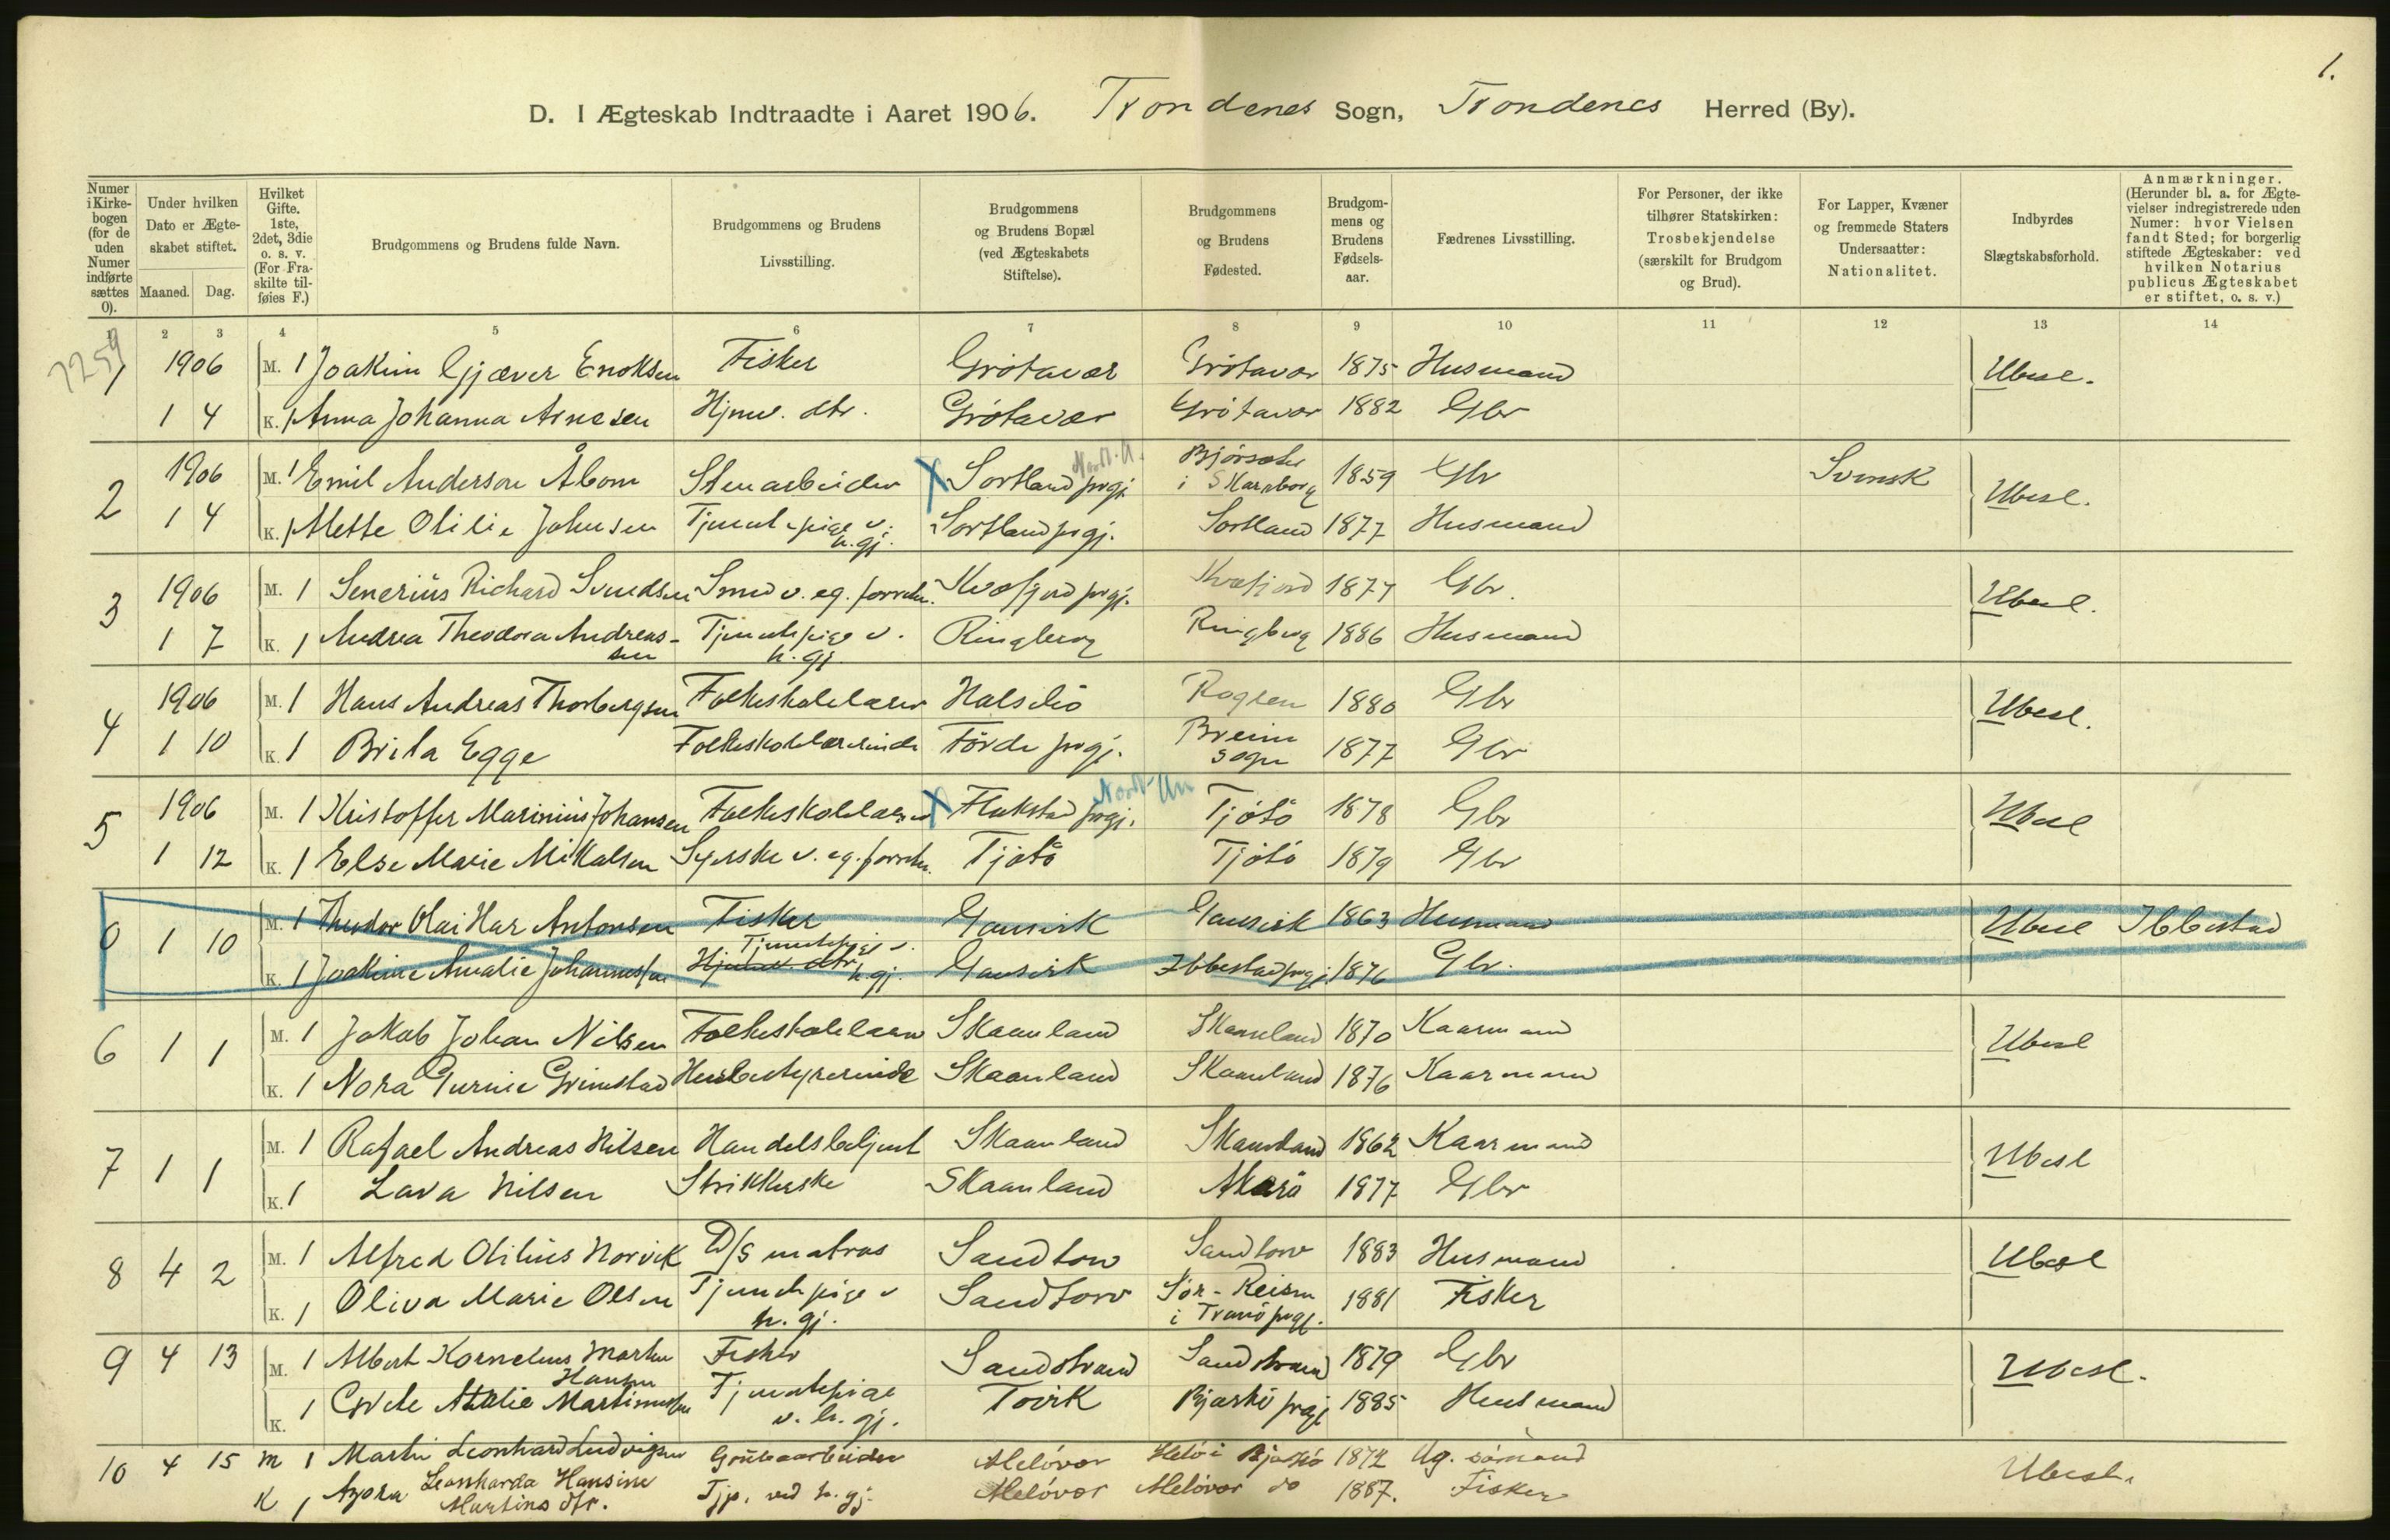 1.
D. I Ægteskab Indtraadte i Aaret 1906. Trondenes Sogn, Trondenes Herred (By).
Numer i Kirkebogen (for de uden Numer indførte sættes 0).
Under hvilken Dato er Ægteskabet stiftet.
Maaned. Dag.
Hvilket Gifte. 1ste, 2det, 3die o. s. v. (For Fraskilte tilføies F.)
Brudgommens og Brudens fulde Navn.
Brudgommens og Brudens Livsstilling.
Brudgommens og Brudens Bopæl (ved Ægteskabets Stiftelse).
Brudgommens og Brudens Fødested.
Brudgommens og Brudens Fødselsaar.
Fædrenes Livsstilling.
For Personer, der ikke tilhører Statskirken: Trosbekjendelse (særskilt for Brudgom og Brud).
For Lapper, Kvæner og fremmede Staters Undersaatter: Nationalitet.
Indbyrdes Slægtskabsforhold.
Anmærkninger. (Herunder bl. a. for Ægtevielser indregistrerede uden Numer: hvor Vielsen fandt Sted; for borgerlig stiftede Ægteskaber: ved hvilken Notarius publicus Ægteskabet er stiftet, o. s. v.)
1 2 3 4 5 6 7 8 9 10 11 12 13 14
7259
1 1906 M. 1 Joakim Gjæver Enoksen Fisker Grötavær Grötavær 1875 Husmand Ubesl.
1 4 K. 1 Anna Johanna Arnesen Hjmv. dtr. Grötavær Grötavær 1882 Gbr
2 1906 M. 1 Emil Anderson Åbom Stenarbeider X Sortland prgj. Nordl. A. i Skaraborg 1859 Gbr Svensk Ubesl.
1 4 K. 1 Mette Otilie Johnsen Tjenestepige v. h. gj. Sortland prgj. Sortland 1877 Husmand
3 1906 M. 1 Senerius Richard Svendsen Smed v. eg. forretn. Kvæfjord prgj. Kvæfjord 1877 Gbr. Ubesl.
1 7 K. 1 Andrea Theodora Andreassen Tjenestepige v. h. gj. Ringberg Ringberg 1886 Husmand
4 1906 M. 1 Hans Andreas Thorbergsen Folkeskolelærer Halsebö Rogsen 1880 Gbr Ubesl.
1 10 K. 1 Brita Egge Folkeskolelærerinde Förde prgj. Breim sogn 1877 Gbr
5 1906 M. 1 Kristoffer Marinius Johansen Folkeskolelærer X Flakstad prgj. Nordl. Am Tjötö 1878 Gbr Ubesl
1 12 K. 1 Else Marie Mikalsen Syerske v. eg. forretn. Tjötö Tjötö 1879 Gbr
0 1 10 M. 1 Theodor Olai Antonsen Fisker Gausvik Gausvik 1863 Husmand Ubesl Ibbestad
K. 1 Joakime Amalie Johannessen Hjemmev. dtr. Tjenestepige v. h. gj. Gausvik Ibbestad prgj. 1876 Gbr.
6 1 1 M. 1 Jakob Johan Nilsen Folkeskolelærer Skaanland Skaanland 1870 Kaarmand Ubesl
K. 1 Nora Grimstad Husbestyrerinde Skaanland Skaanland 1876 Kaarmand
7 1 1 M. 1 Rafael Andreas Nilsen Handelsbetjent Skaanland Skaanland 1862 Kaarmand Ubesl
K. 1 Lava Nilsen Strikkerske Skaanland 1877 Gbr
8 4 2 M. 1 Alfred Otilius Norvik D/S matros Sandtorv Sandtorv 1883 Husmand Ubesl
K. 1 Oliva Marie Olsen Tjenestepige v h. gj. Sandtorv Sör-Reisen i Tranö prgj. 1881 Fisker
9 4 13 M. 1 Albert Kornelius Martin Hansen Fisker Sandstrand Sandstrand 1879 Gbr Ubesl.
K. 1 Grete Atalie Martinussen Tjenestepige v. h. gj. Tovik Bjarkö prgj 1885 Husmand
10 4 15 M 1 Martin Leonhard Ludvigsen Grubearbeider Melövær Helö i Bjarkö 1872 Ug. sömand Ubesl.
K 1 Azora Leonharda Hansine Martins dtr. Tjp. ved h. gj. Melövær Melövær do 1887. Fisker